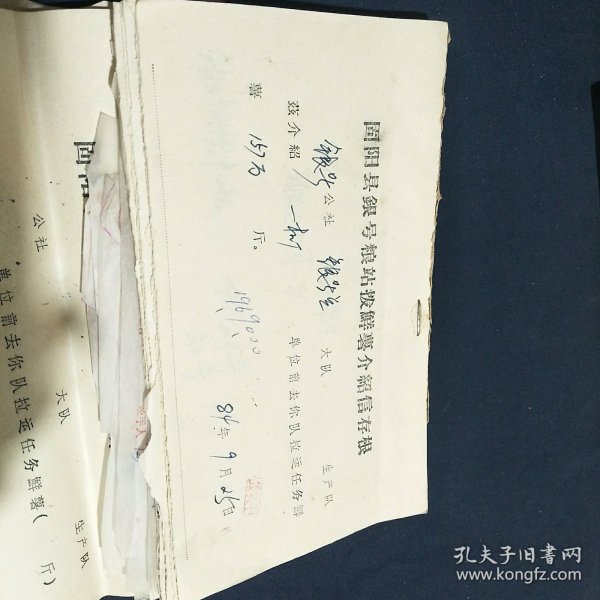 固阳县銀号粮站拨鮮薯介紹信存根
銀号公社 銀号 大队 生产队
茲介紹 单位前去你队拉运任务鮮
薯 157万 斤。
1969000
84年9月25日
固阳
公社 大队 生产队
单位前去你队拉运任务鮮薯( 斤)
孔夫子旧書网
www.kongfz.com